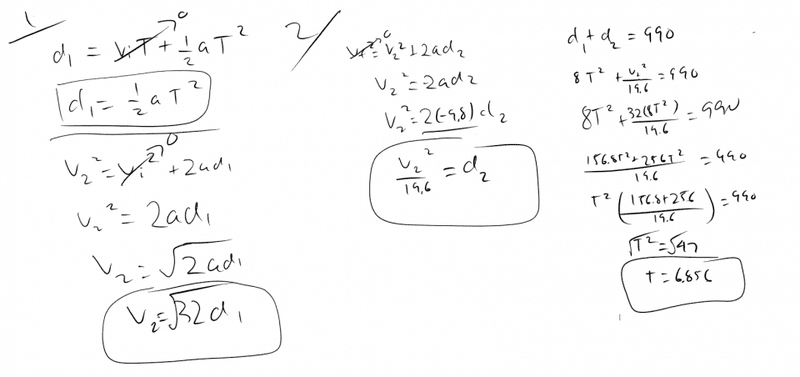 1
d₁ = v₁T + ½aT²
0
d₁ = ½aT²
v₂² = v₁² + 2ad₁
0
v₂² = 2ad₁
v₂ = √2ad₁
v₂ = √32d₁
2
0
v₂² + 2ad₂
v₂² = -2ad₂
v₂² = 2(-9.8) d₂
v₂²/19.6 = d₂
d₁ + d₂ = 990
8T² + v₂²/19.6 = 990
8T² + 32(8T²)/19.6 = 990
156.8T² + 256T²/19.6 = 990
T² (156.8 + 256/19.6) = 990
√T² = √47
t = 6.856